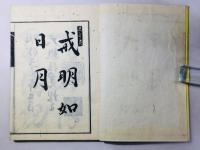 戒明如
日月